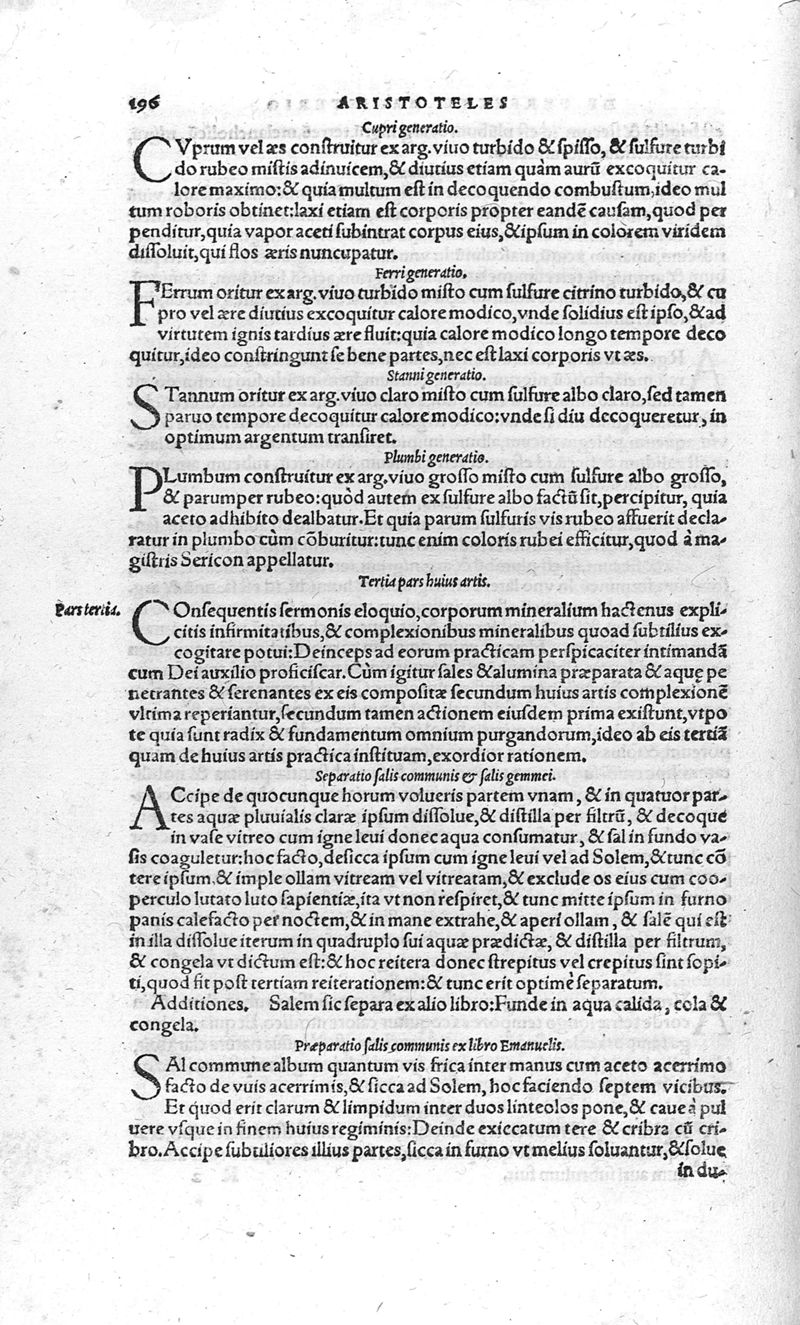 196 ARISTOTELES
Cupri generatio.
CVprum vel æs construitur ex arg. viuo turbido & spisso, & sulfure turbi
do rubeo mistis adinuicem, & diutius etiam quàm aurũ excoquitur ca-
lore maximo: & quia multum est in decoquendo combustum, ideo mul
tum roboris obtinet: laxi etiam est corporis propter eandẽ causam, quod per
penditur, quia vapor aceti subintrat corpus eius, & ipsum in colorem viridem
dissoluit, qui flos æris nuncupatur.
Ferri generatio.
FErrum oritur ex arg. viuo turbido misto cum sulfure citrino turbido, & cu
pro vel ære diutius excoquitur calore modico, vnde solidius est ipso, & ad
virtutem ignis tardius ære fluit: quia calore modico longo tempore deco
quitur, ideo constringunt se bene partes, nec est laxi corporis vt æs.
Stanni generatio.
STannum oritur ex arg. viuo claro misto cum sulfure albo claro, sed tamen
paruo tempore decoquitur calore modico: vnde si diu decoqueretur, in
optimum argentum transiret.
Plumbi generatio.
PLumbum construitur ex arg. viuo grosso misto cum sulfure albo grosso,
& parumper rubeo: quòd autem ex sulfure albo factũ sit, percipitur, quia
aceto adhibito dealbatur. Et quia parum sulfuris vis rubeo affuerit decla-
ratur in plumbo cùm cõburitur: tunc enim coloris rubei efficitur, quod à ma-
gistris Sericon appellatur.
Tertia pars huius artis.
Pars tertia.
COnsequentis sermonis eloquio, corporum mineralium hactenus expli-
citis infirmitatibus, & complexionibus mineralibus quoad subtilius ex-
cogitare potui: Deinceps ad eorum practicam perspicaciter intimandã
cum Dei auxilio proficiscar. Cùm igitur sales & alumina præparata & aquę pe
netrantes & serenantes ex eis compositæ secundum huius artis complexionẽ
vltima reperiantur, secundum tamen actionem eiusdem prima existunt, vtpo
te quia sunt radix & fundamentum omnium purgandorum, ideo ab eis tertiã
quam de huius artis practica instituam, exordior rationem.
Separatio salis communis & salis gemmei.
ACcipe de quocunque horum volueris partem vnam, & in quatuor par-
tes aquæ pluuialis claræ ipsum dissolue, & distilla per filtrũ, & decoque
in vase vitreo cum igne leui donec aqua consumatur, & sal in fundo va-
sis coaguletur: hoc facto, desicca ipsum cum igne leui vel ad Solem, & tunc cõ
tere ipsum. & imple ollam vitream vel vitreatam, & exclude os eius cum coo-
perculo lutato luto sapientiæ, ita vt non respiret, & tunc mitte ipsum in furno
panis calefacto per noctem, & in mane extrahe, & aperi ollam, & salẽ qui est
in illa dissolue iterum in quadruplo sui aquæ prædictæ, & distilla per filtrum,
& congela vt dictum est: & hoc reitera donec strepitus vel crepitus sint sopi-
ti, quod fit post tertiam reiterationem: & tunc erit optimè separatum.
Additiones. Salem sic separa ex alio libro: Funde in aqua calida, cola &
congela.
Præparatio salis communis ex libro Emanuelis.
SAl commune album quantum vis frica inter manus cum aceto acerrimo
facto de vuis acerrimis, & sicca ad Solem, hoc faciendo septem vicibus.
Et quod erit clarum & limpidum inter duos linteolos pone, & caue à pul
uere vsque in finem huius regiminis: Deinde exiccatum tere & cribra cũ cri-
bro. Accipe subtiliores illius partes, sicca in furno vt melius soluantur, & solue
in du-